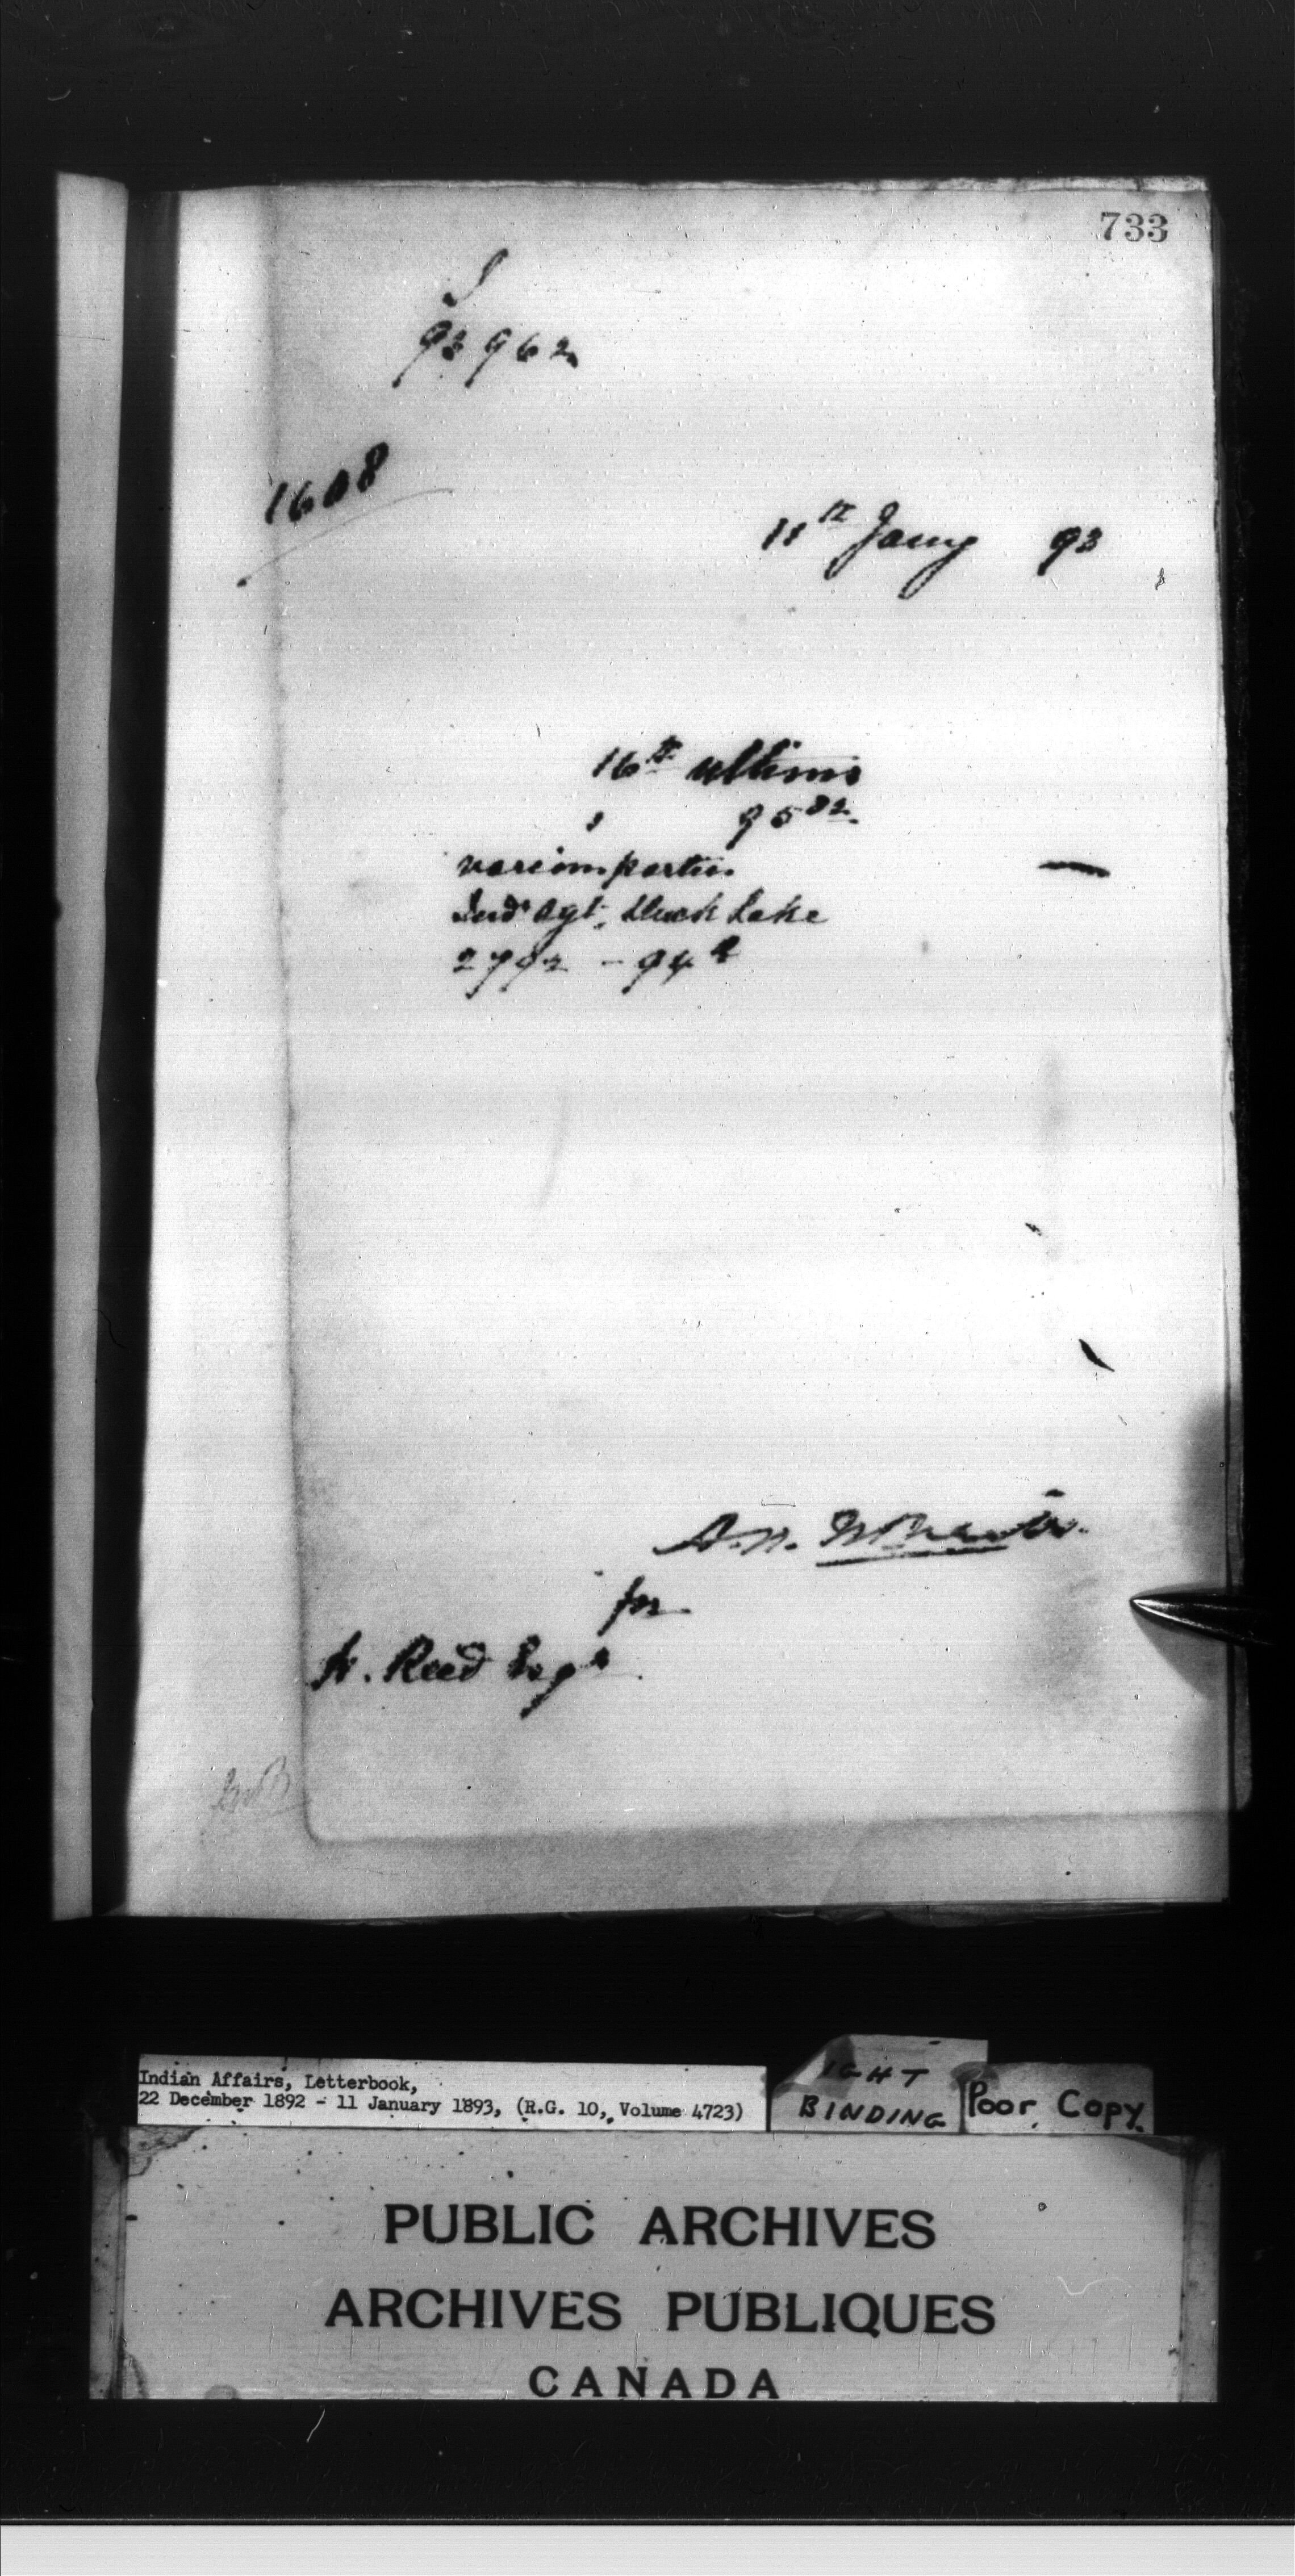 733
93962
1608
11th Jany 93
16th ultimo
95 82
various parties
Ind. Agt. Duck Lake
2792 - 94
A.N.
for
H. Reed Esqr
Indian Affairs, Letterbook,
22 December 1892 - 11 January 1893, (R.G. 10, Volume 4723)
IGHT
BINDING
Poor Copy
PUBLIC ARCHIVES
ARCHIVES PUBLIQUES
CANADA